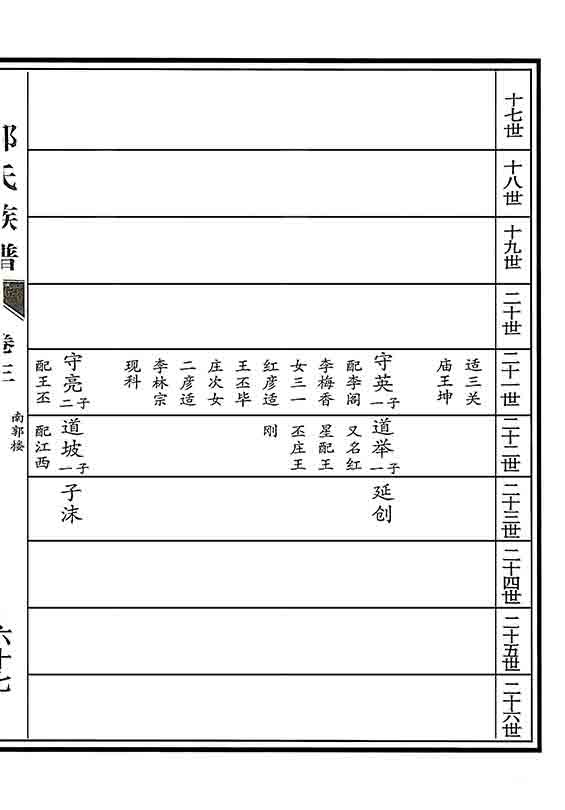 十七世
十八世
十九世
二十世
二十一世
适三关
庙王坤
守英一子
配李阁
李梅香
女三一
红彦适
王丕毕
庄次女
二彦适
李林宗
现科
守亮二子
配王丕
二十二世
道举一子
又名红
星配王
丕庄王
刚
道坡一子
配江西
二十三世
延创
子沫
二十四世
二十五世
二十六世
郭氏族谱
卷三
南郭楼
六十七